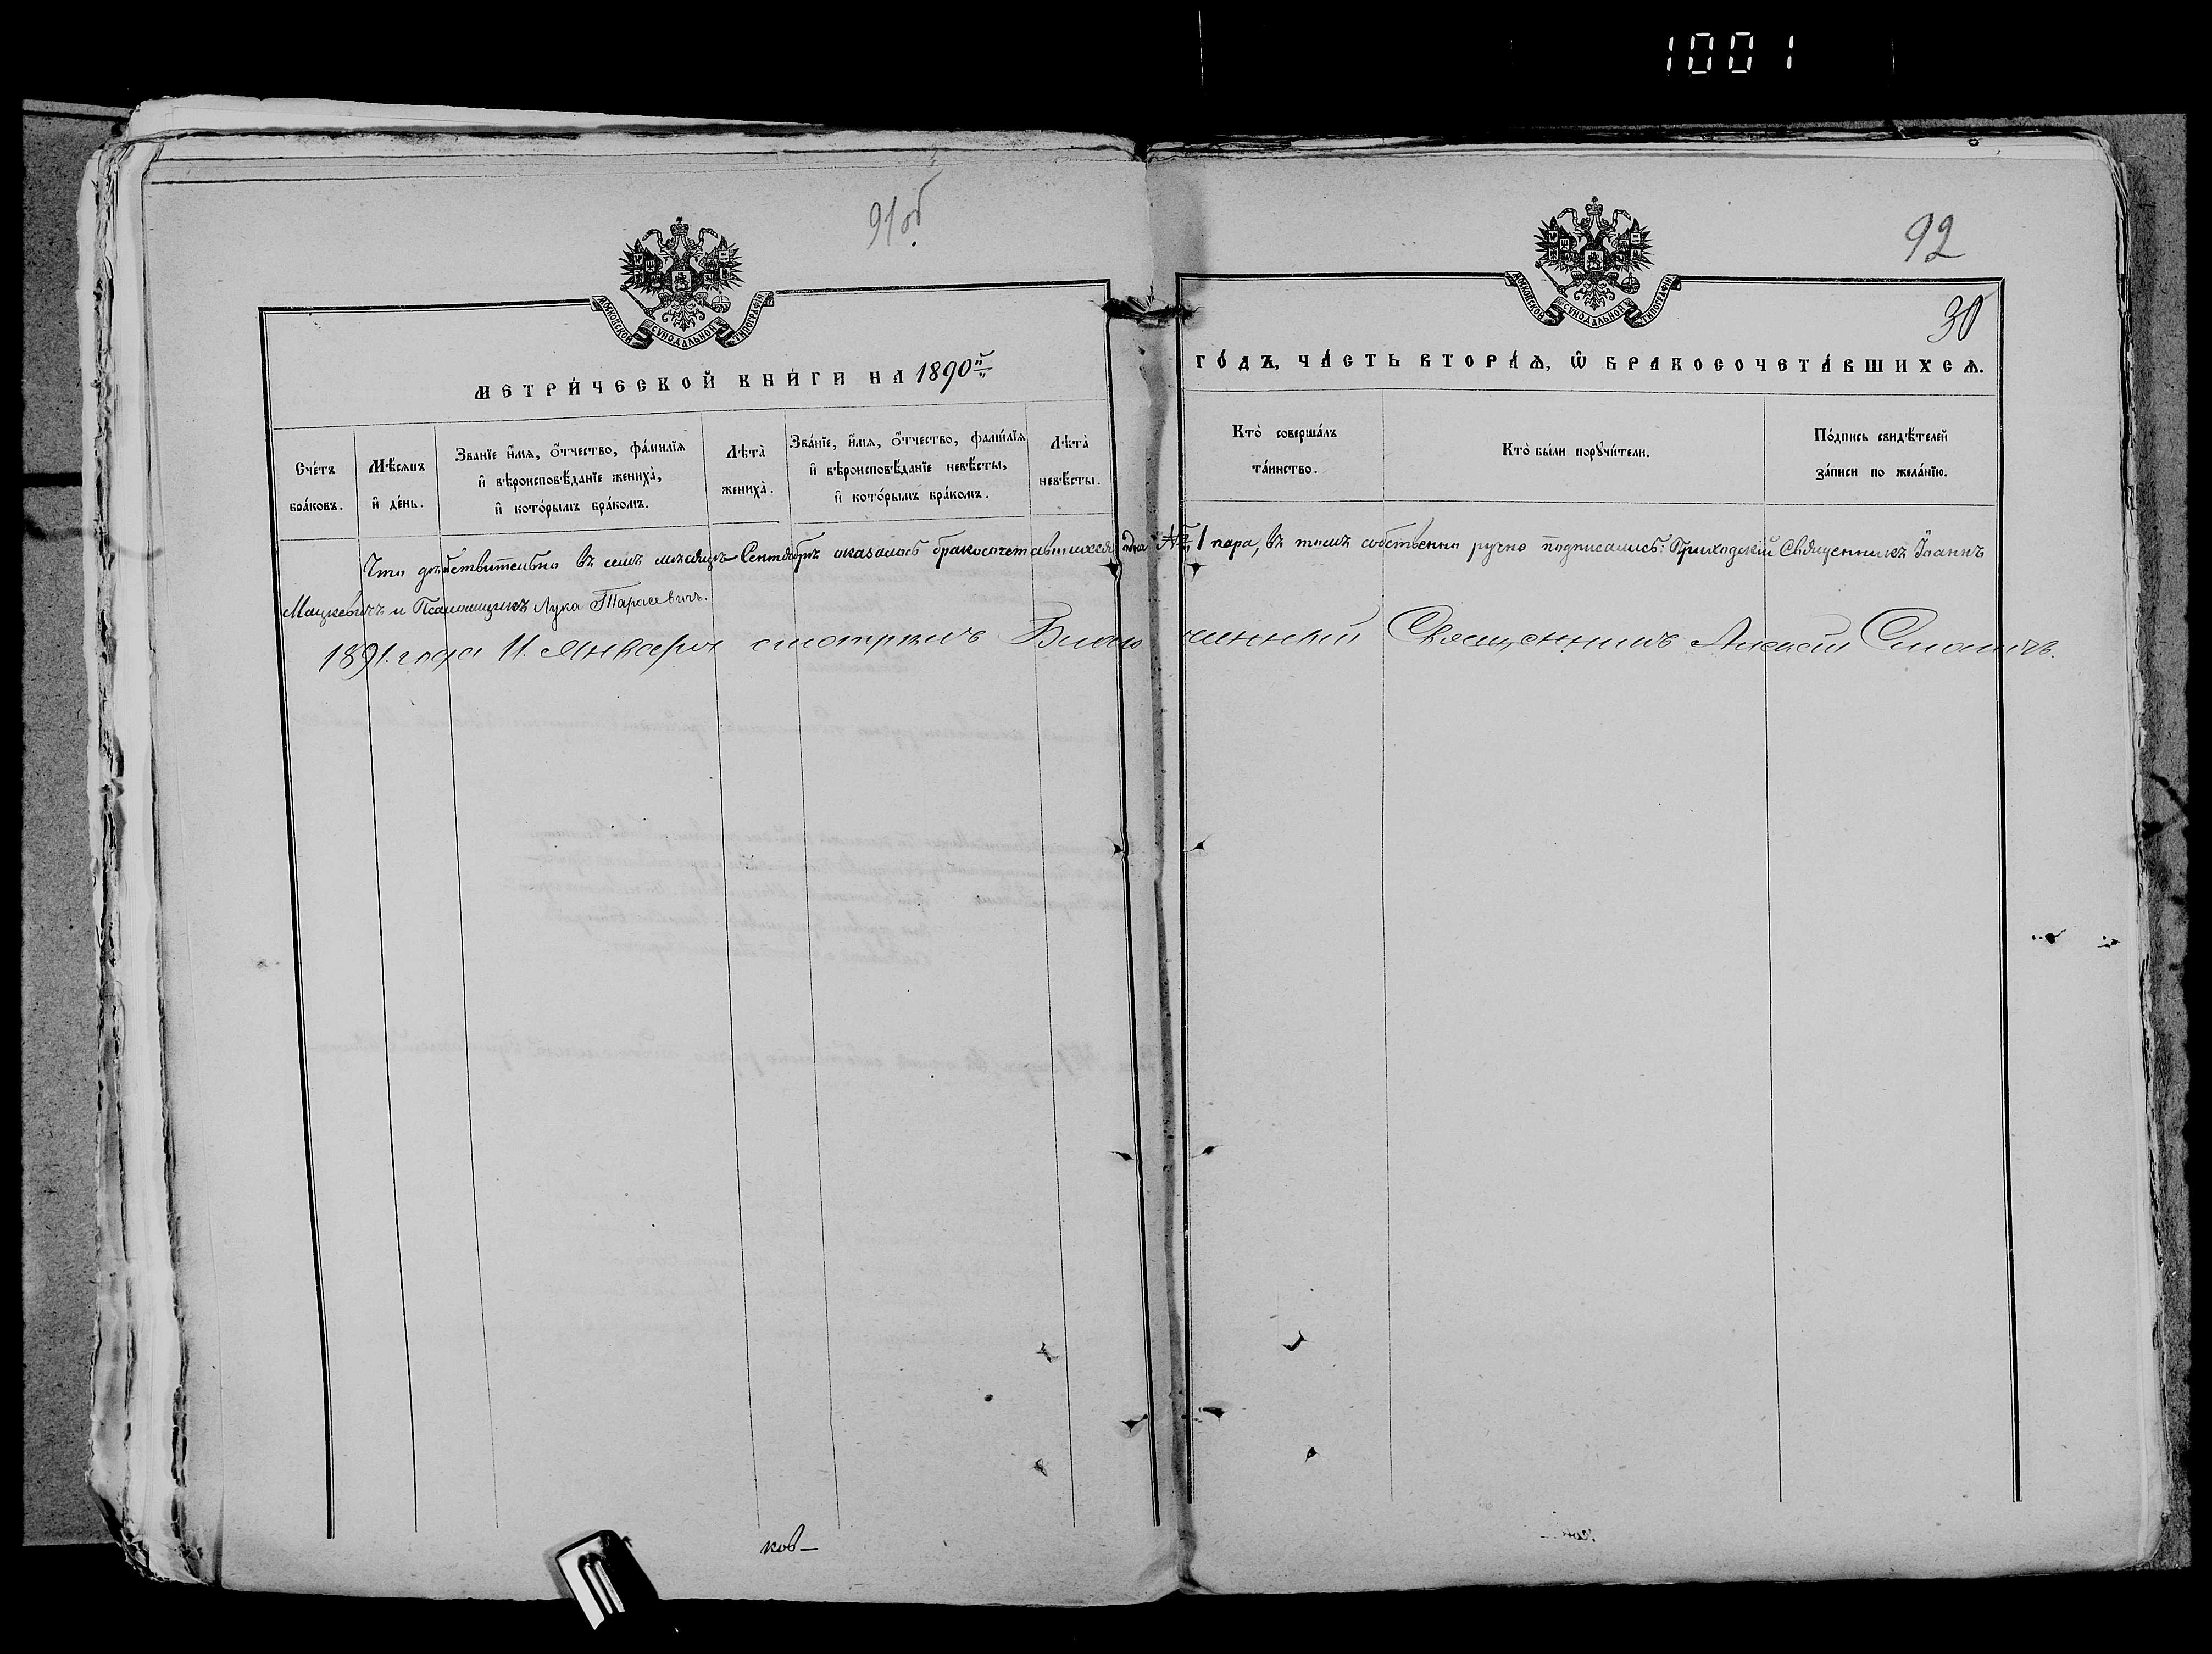 1001
91об
92
30
МОСКОВСКОЙ СѴНОДАЛЬНОЙ ТИПОГРАФІИ
МОСКОВСКОЙ СѴНОДАЛЬНОЙ ТИПОГРАФІИ
МЕТРИ́ЧЕСКОЙ КНИ́ГИ НА 1890й
ГО́ДЪ, ЧА́СТЬ ВТОРА́Я, Ѡ҆ БРАКОСОЧЕТА́ВШИХСЯ.
Сче́тъ бра́ковъ.
Мѣ́сяцъ и҆ де́нь.
Зва́нїе и҆́мя, ѻ҆́тчество, фами́лїя и҆ вѣроисповѣ́данїе жениха̀, и҆ кото́рымъ бра́комъ.
Лѣта̀ жениха̀.
Зва́нїе, и҆́мя, ѻ҆́тчество, фами́лїя и҆ вѣроисповѣ́данїе невѣ́сты, и҆ кото́рымъ бра́комъ.
Лѣта̀ невѣ́сты.
Кто̀ соверша́лъ та́инство.
Кто̀ бы́ли порꙋчи́тели.
По́дпись свидѣ́телей за́писи по жела́нїю.
Что действительно въ семъ мѣсяцѣ Сентябрѣ оказалось бракосочетавшихся одна № 1 пара, въ томъ собственно ручно подписались: Приходскій Священникъ Іоаннъ
Мацкевичъ и Псаломщикъ Лука Тарасевичъ.
1891. года 11. Января смотрѣлъ Благочинный Священникъ Алексій
ков—